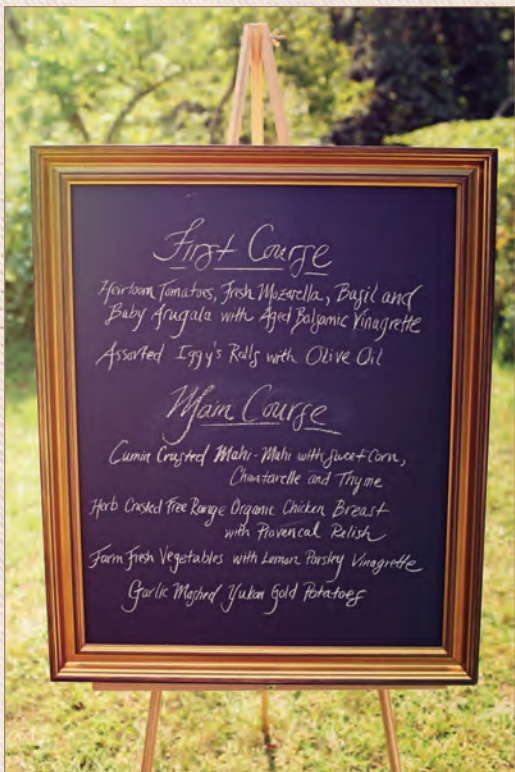 First Course
Heirloom Tomatoes, Fresh Mozarella, Basil and
Baby Arugala with Aged Balsamic Vinagrette
Assorted Iggy's Rolls with Olive Oil
Main Course
Cumin Crusted Mahi-Mahi with Sweet Corn,
Chantarelle and Thyme
Herb Crusted Free Range Organic Chicken Breast
with Provencal Relish
Farm Fresh Vegetables with Lemon Parsley Vinagrette
Garlic Mashed Yukon Gold Potatoes